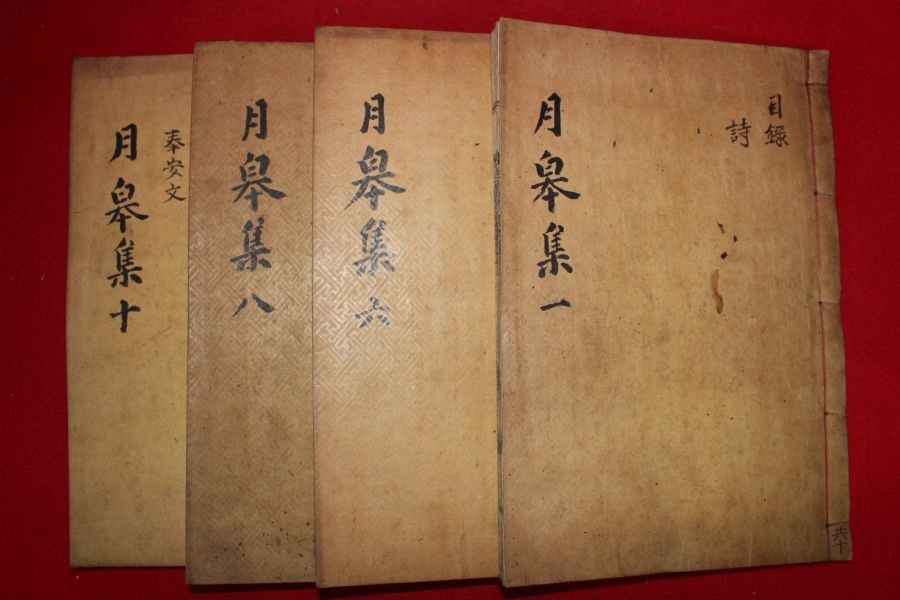 目錄
詩
月皐集一
共十
月皐集六
月皐集八
奉安文
月皐集十